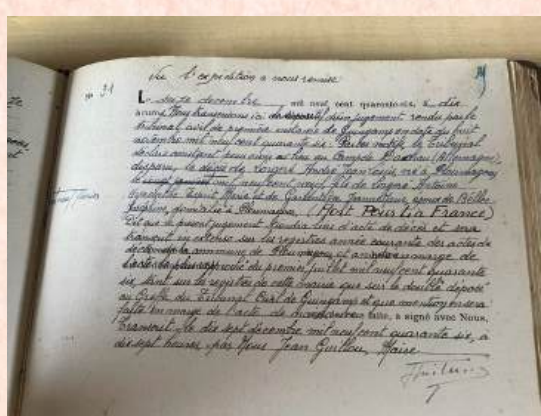 Vu l'expédition à nous remise
No 31
Le seize décembre mil neuf cent quarante six, à dix
avons Nous transcrivons ici le dispositif d'un jugement rendu par le
tribunal civil de première instance de Guingamp en date du huit
novembre mil neuf cent quarante six. Par ces motifs le Tribunal
déclare constant pour avoir eu lieu au Camp de Dachau (Allemagne),
disparu, le décès de Longeré André Jean Louis né à Ploumagoar
mil neuf cent neuf fils de Longeré Antoine
Hyacinthe Esprit Marie et de
Joséphine, domicilié à Ploumagoar, (Mort Pour la France)
Dit que le présent jugement tiendra lieu d'acte de décès et sera
transcrit in extenso sur les registres année courante des actes de
décès de la commune de Ploumagoar et en marge de
l'acte le plus rapproché du premier juillet mil neuf cent quarante
six, tant sur les registres de cette mairie que sur le double déposé
au Greffe du Tribunal Civil de Guingamp et que mention en sera
faite en marge de l'acte de naissance faite, a signé avec Nous,
Transcrit le dix sept décembre mil neuf cent quarante six, à
dix sept heures par Nous Jean Guillou, Maire